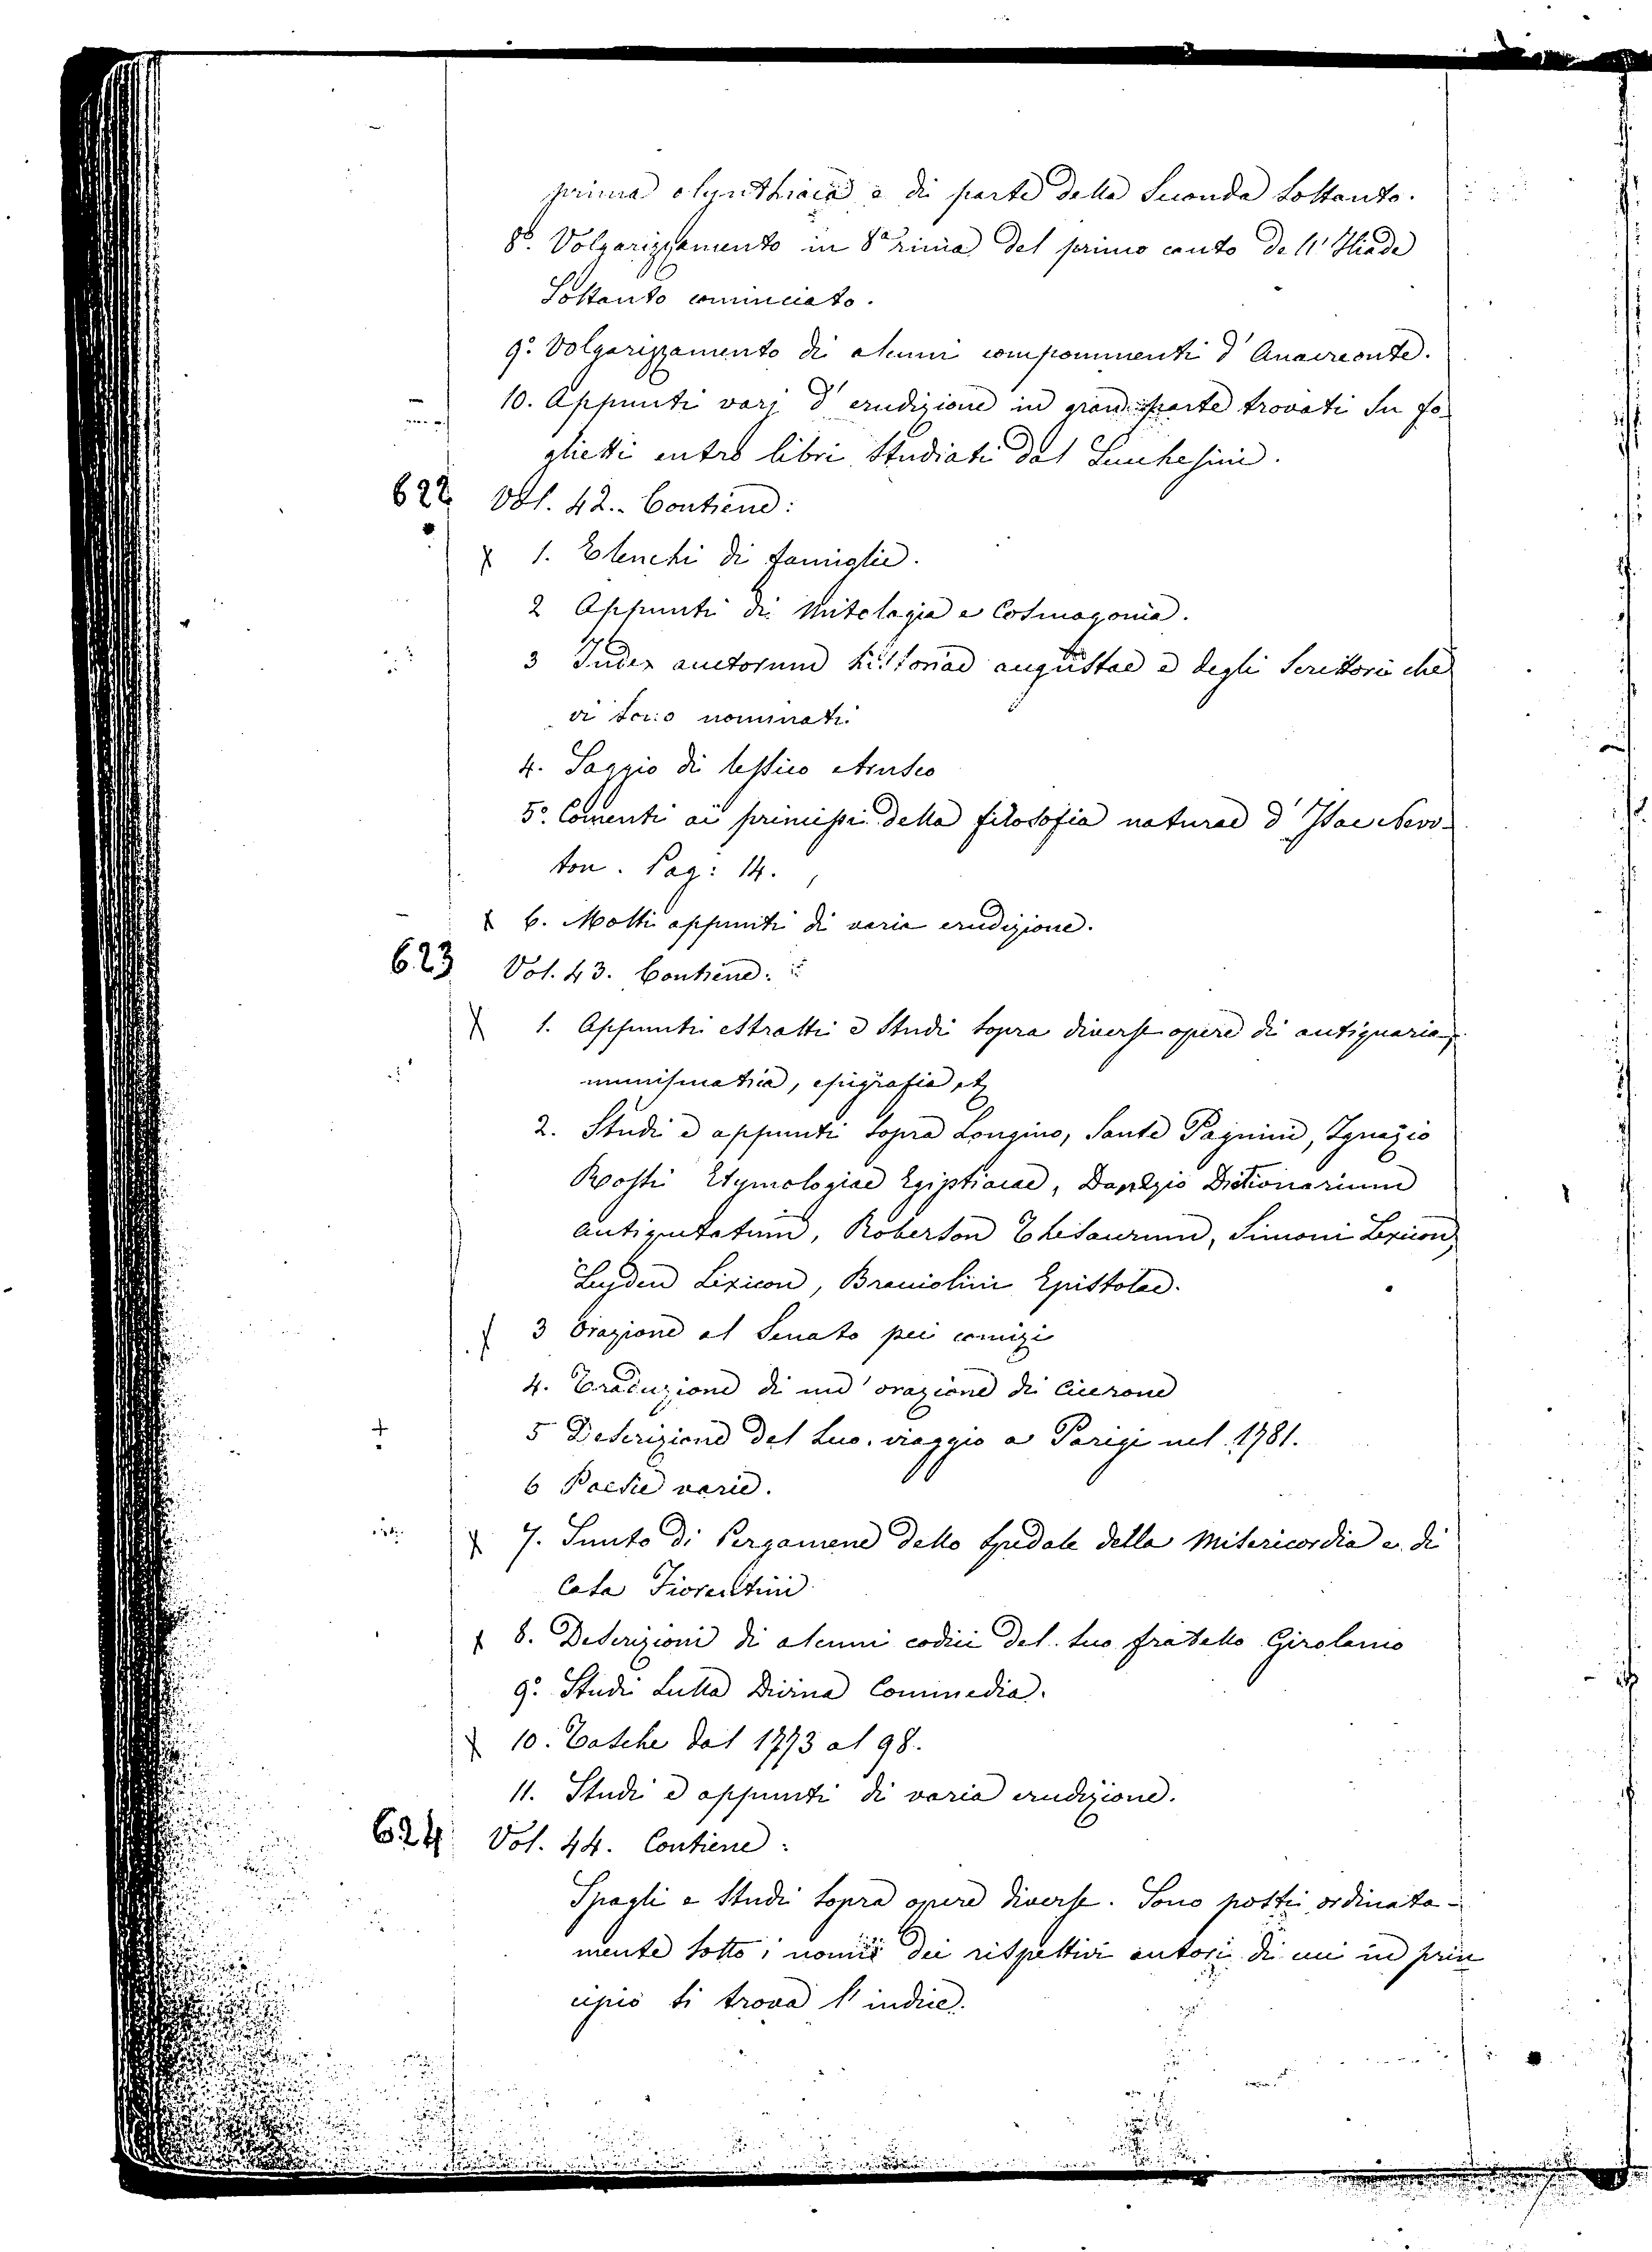 prima olynthiaca e di parte della seconda soltanto.
8º. Volgarizzamento in 8ª rima del primo canto dell'Iliade
soltanto cominciato.
9º. Volgarizzamento di alcuni componimenti d'Anacreonte.
10. Appunti varj d'erudizione in gran parte trovati su fo-
glietti entro libri studiati dal Lucchesini.
622 Vol. 42. Contiene:
1. Elenchi di famiglie.
2 Appunti di Mitologia e Cosmogonia.
3 Index auctorum historiae augustae e degli scrittori che
vi sono nominati.
4. Saggio di lessico etrusco
5º. Comenti ai principi della filosofia naturae d'Isac New-
ton. Pag: 14.
6. Molti appunti di varia erudizione.
623 Vol. 43. Contiene:
1. Appunti estratti e studi sopra diverse opere di antiquaria,
numismatica, epigrafia etc
2. Studi e appunti sopra Longino, Sante Pagnini, Ignazio
Rossi Etymologiae Egiptiacae, Dictionarium
antiquitatum, Roberson Thesaurum, Simoni Lexicon,
Leyden Lexicon, Braciolini Epistolae.
3 Orazione al Senato pei comizi
4. Traduzione di un'orazione di Cicerone
5 Descrizione del suo viaggio a Parigi nel 1781.
6 Poesie varie.
7. Sunto di Pergamene dello spedale della Misericordia e di
Casa Fiorentini
8. Descrizioni di alcuni codici del suo fratello Girolamo
9º. Studi sulla Divina Commedia.
10. Tasche dal 1773 al 98.
11. Studi e appunti di varia erudizione.
624 Vol. 44. Contiene:
Spogli e studi sopra opere diverse. Sono posti ordinata-
mente sotto i nomi dei rispettivi autori di cui in prin
cipio si trova l'indice.